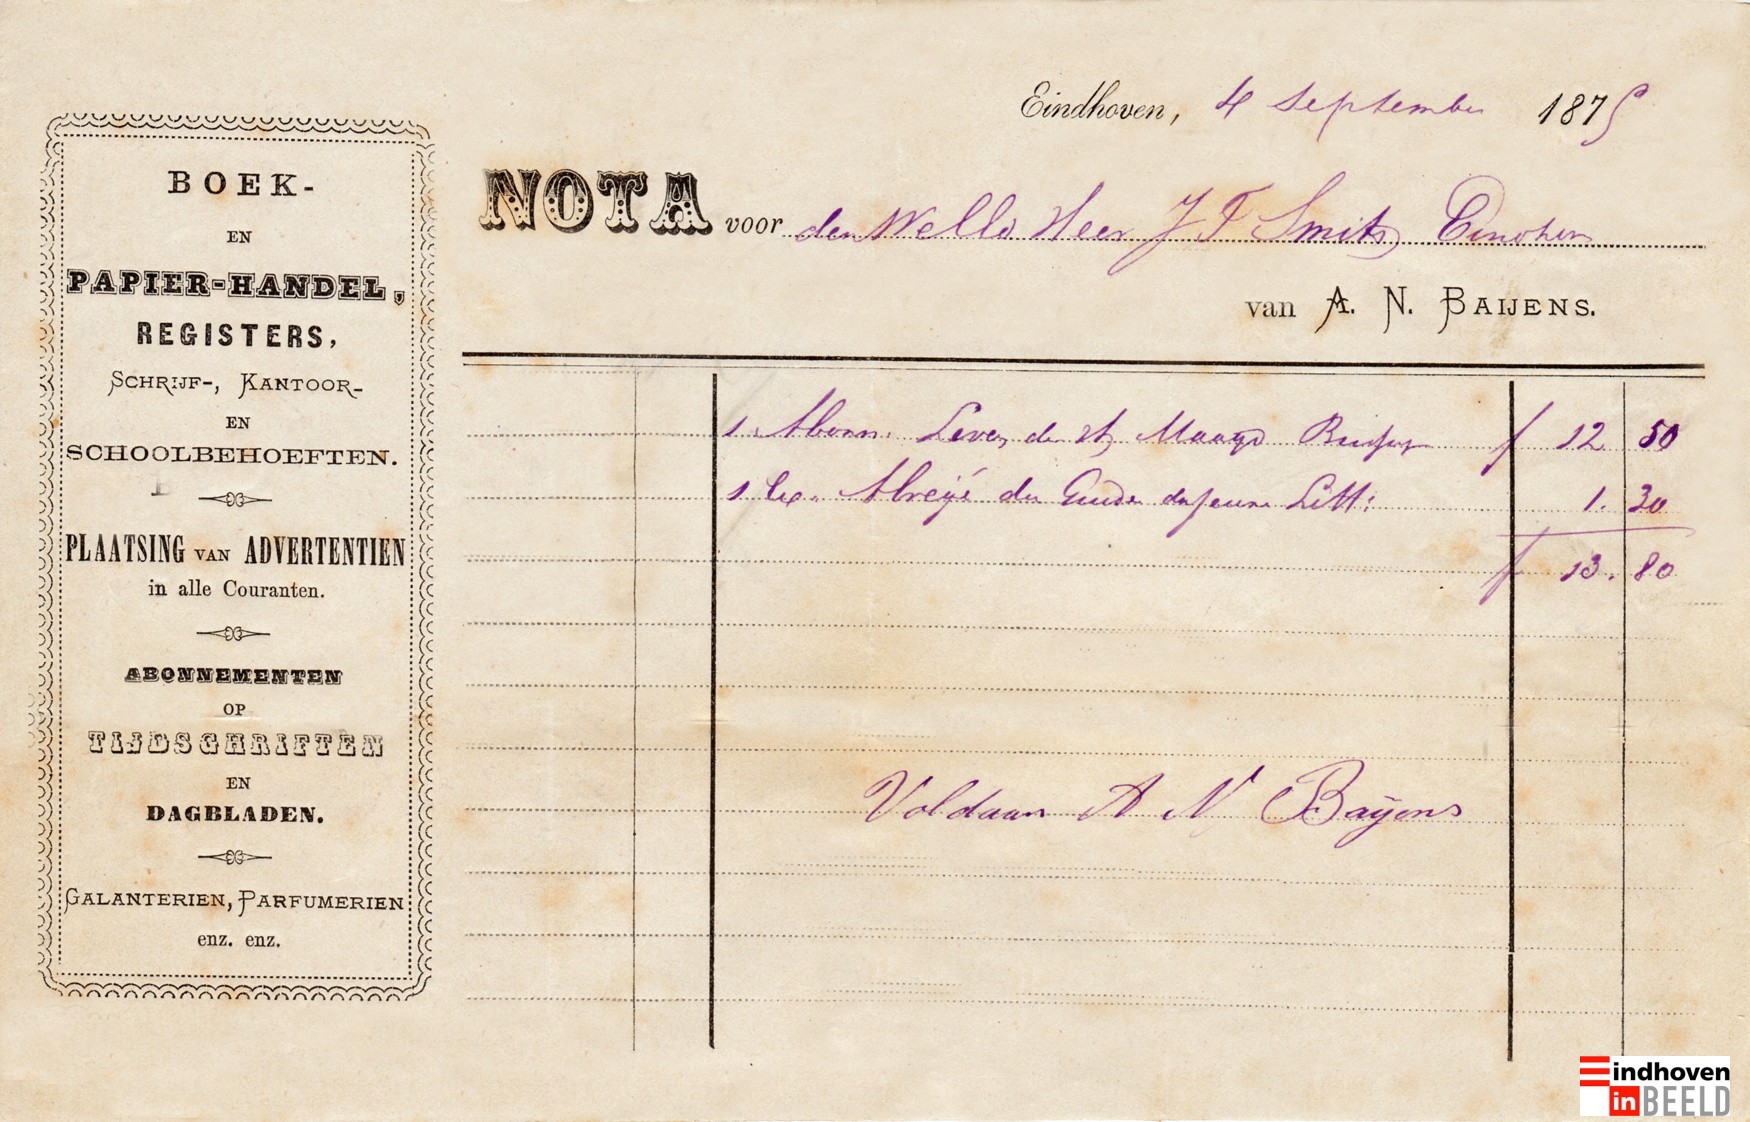 BOEK-
EN
PAPIER-HANDEL,
REGISTERS,
SCHRIJF-, KANTOOR-
EN
SCHOOLBEHOEFTEN.
PLAATSING VAN ADVERTENTIEN
in alle Couranten.
ABONNEMENTEN
OP
TIJDSCHRIFTEN
EN
DAGBLADEN.
GALANTERIEN, PARFUMERIEN
enz. enz.
Eindhoven, 4 September 1875
NOTA voor den Heer J F Smits
van A. N. BAIJENS.
1 Abonn. Leven der H. Maagd f 12 50
1 Ex. Abrégé du Guide Litt: 1. 30
f 13. 80
Voldaan A N Baijens
Eindhoven
in BEELD